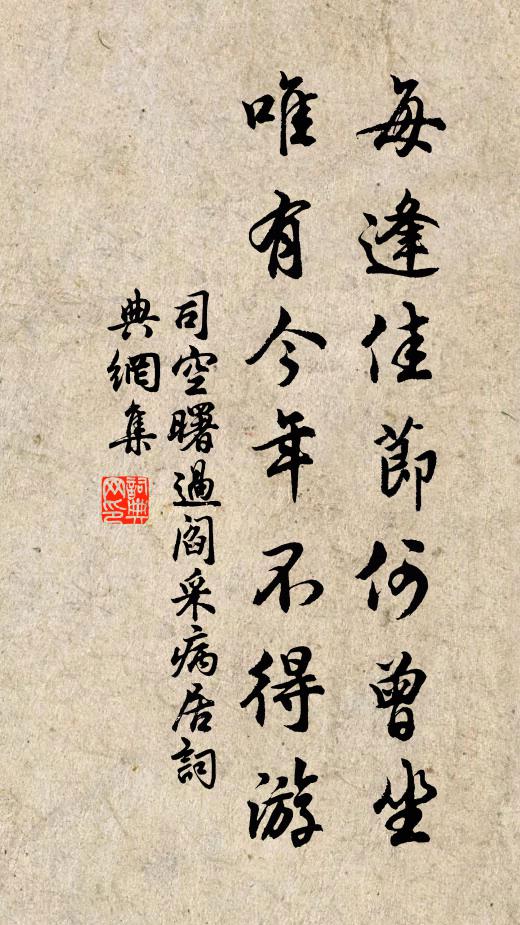 每逢佳節何曾坐
唯有今年不得游
司空曙過閻采病居詞
典網集
詞典
网印